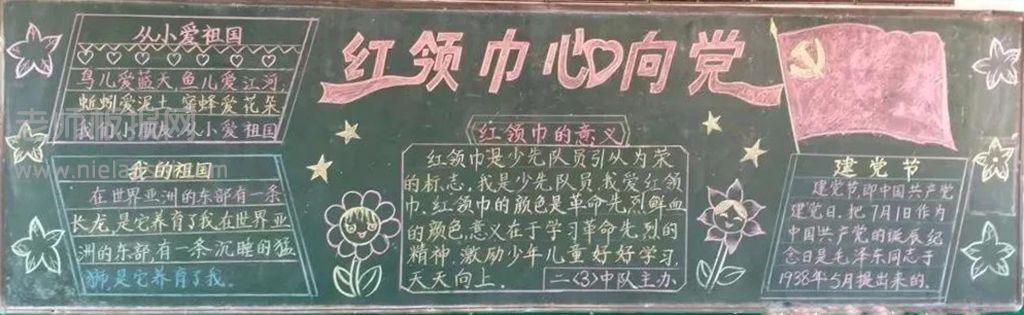 红领巾心向党
从小爱祖国
鸟儿爱蓝天,鱼儿爱江河,
蚯蚓爱泥土,蜜蜂爱花朵
我们小朋友从小爱祖国
我的祖国
在世界亚洲的东部有一条
长龙,是它养育了我在世界亚
洲的东部,有一条沉睡的猛
狮是它养育了我。
红领巾的意义
红领巾是少先队员引从为荣
的标志,我是少先队员,我爱红领
巾、红领巾的颜色是革命先烈鲜血
的颜色,意义在于学习革命先烈的
精神,激励少年儿童好好学习,
天天向上.
二<3>中队主办
建党节
建党节,即中国共产党
建党日、把7月1日作为
中国共产党的诞辰纪
念日是毛泽东同志于
1938年5月提出来的.
老师板报网